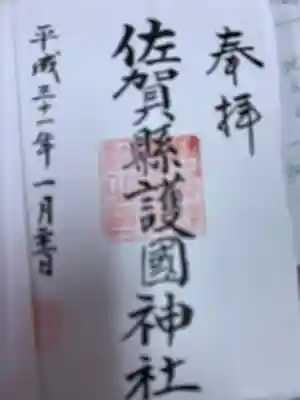 奉拝
佐賀縣護國神社
平成三十一年一月三日